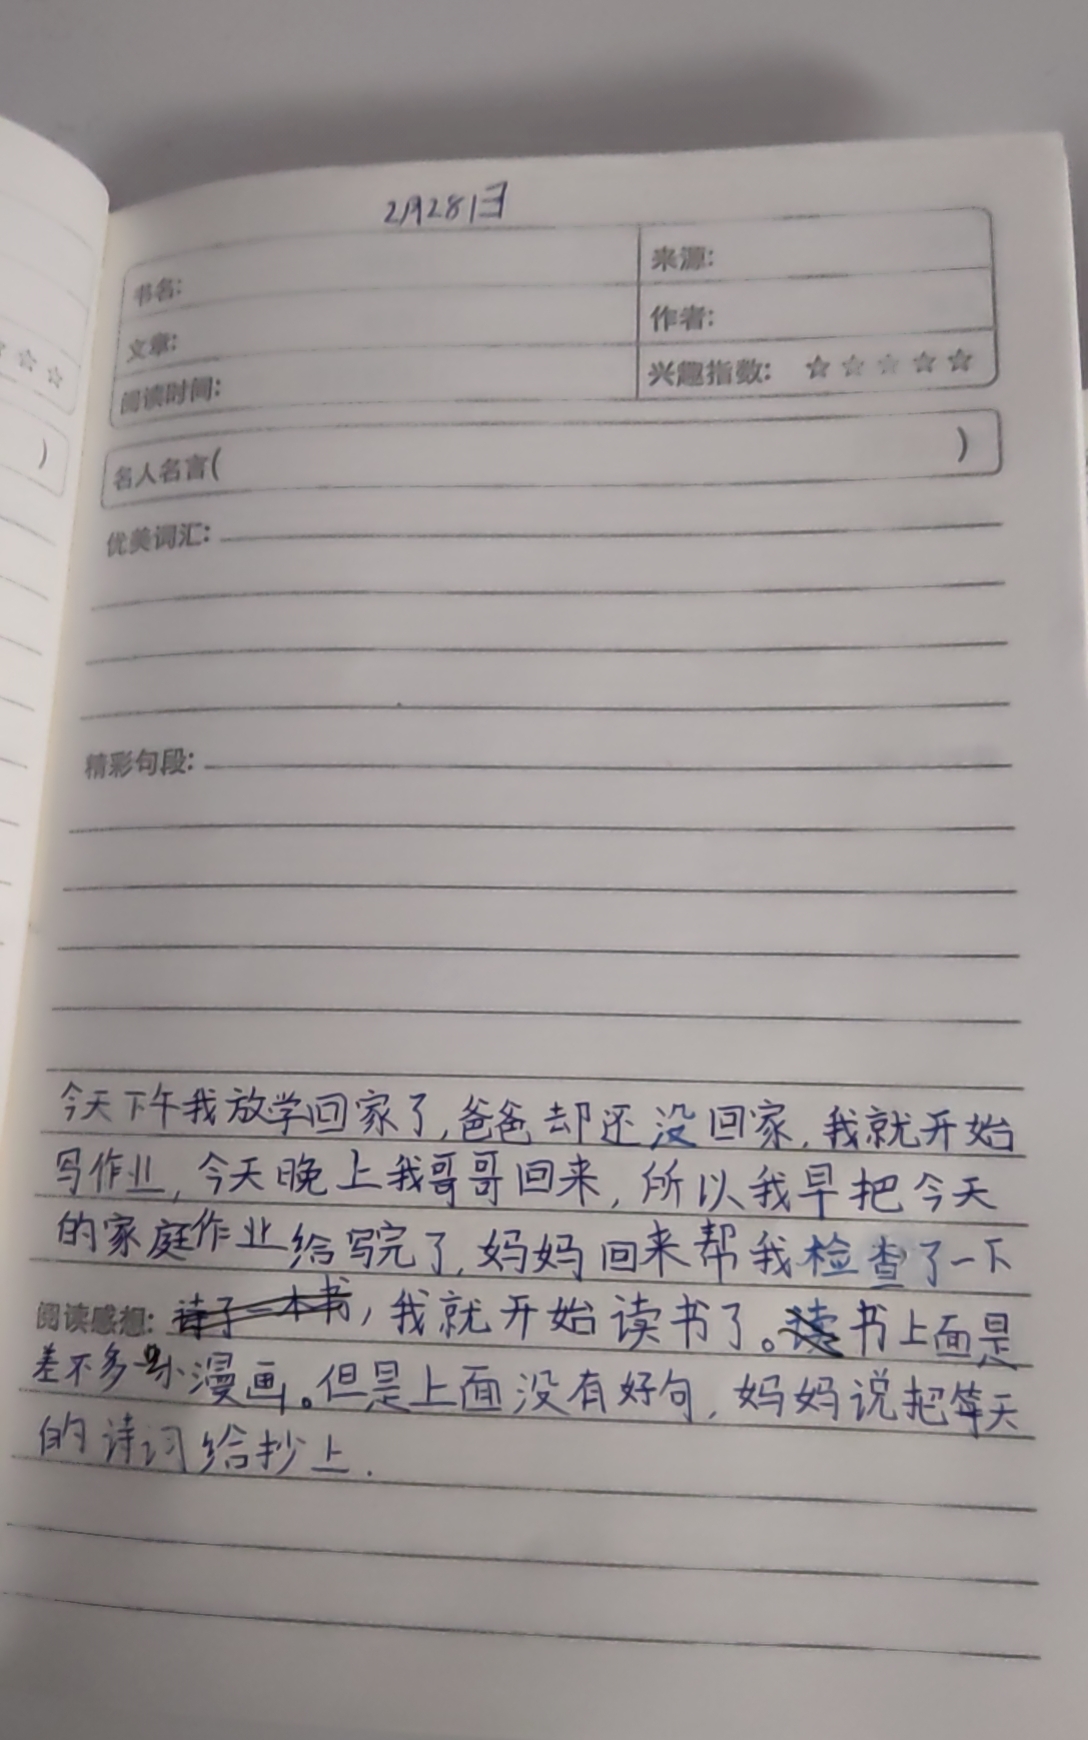 2月28日
书名:
来源:
文章:
作者:
阅读时间:
兴趣指数: ☆☆☆☆☆
名人名言( )
优美词汇:
精彩句段:
今天下午我放学回家了,爸爸却还没回家,我就开始
写作业,今天晚上我哥哥回来,所以我早把今天
的家庭作业给写完了,妈妈回来帮我检查了一下
阅读感想: ,我就开始读书了。书上面是
差不多 小漫画。但是上面没有好句,妈妈说把 天
的诗词给抄上.
☆☆
)